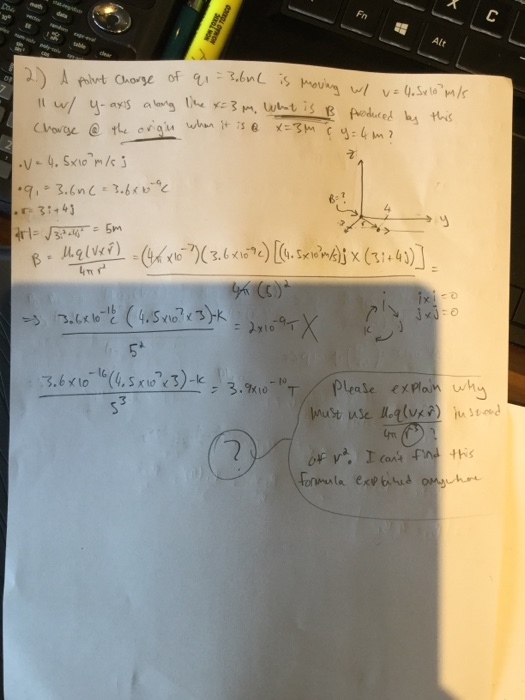 X C
Fn
Alt
math
data
menu
NON TOXIC
2.) A point charge of q₁ = 3.6nC is moving w/ v = 4.5x10⁷ m/s
|| w/ y-axis along line x=3m. What is B produced by this
charge @ the origin when it is @ x=3m & y=4m?
• v = 4.5x10⁷ m/s j
• q₁ = 3.6nC = 3.6x10⁻⁹C
• r = 3i+4j
|r| = √3i²+4j² = 5m
z
B=?
4
y
3
r
B = μ₀q(v×r̂) / 4π r² = (4π x10⁻⁷)(3.6x10⁻⁹C)[(4.5x10⁷m/s)j × (3i+4j)] / 4π (5)² =
i j k
i×i=0
j×j=0
⇒ 3.6x10⁻¹⁶C (4.5x10⁷x3)-K / 5² = 2x10⁻⁹T X
3.6x10⁻¹⁶(4.5x10⁷x3)-K / 5³ = 3.9x10⁻¹⁰T
?
Please explain why
must use μ₀q(v×r̂) / 4π r³ instead
off r². I can't find this
formula explained anywhere